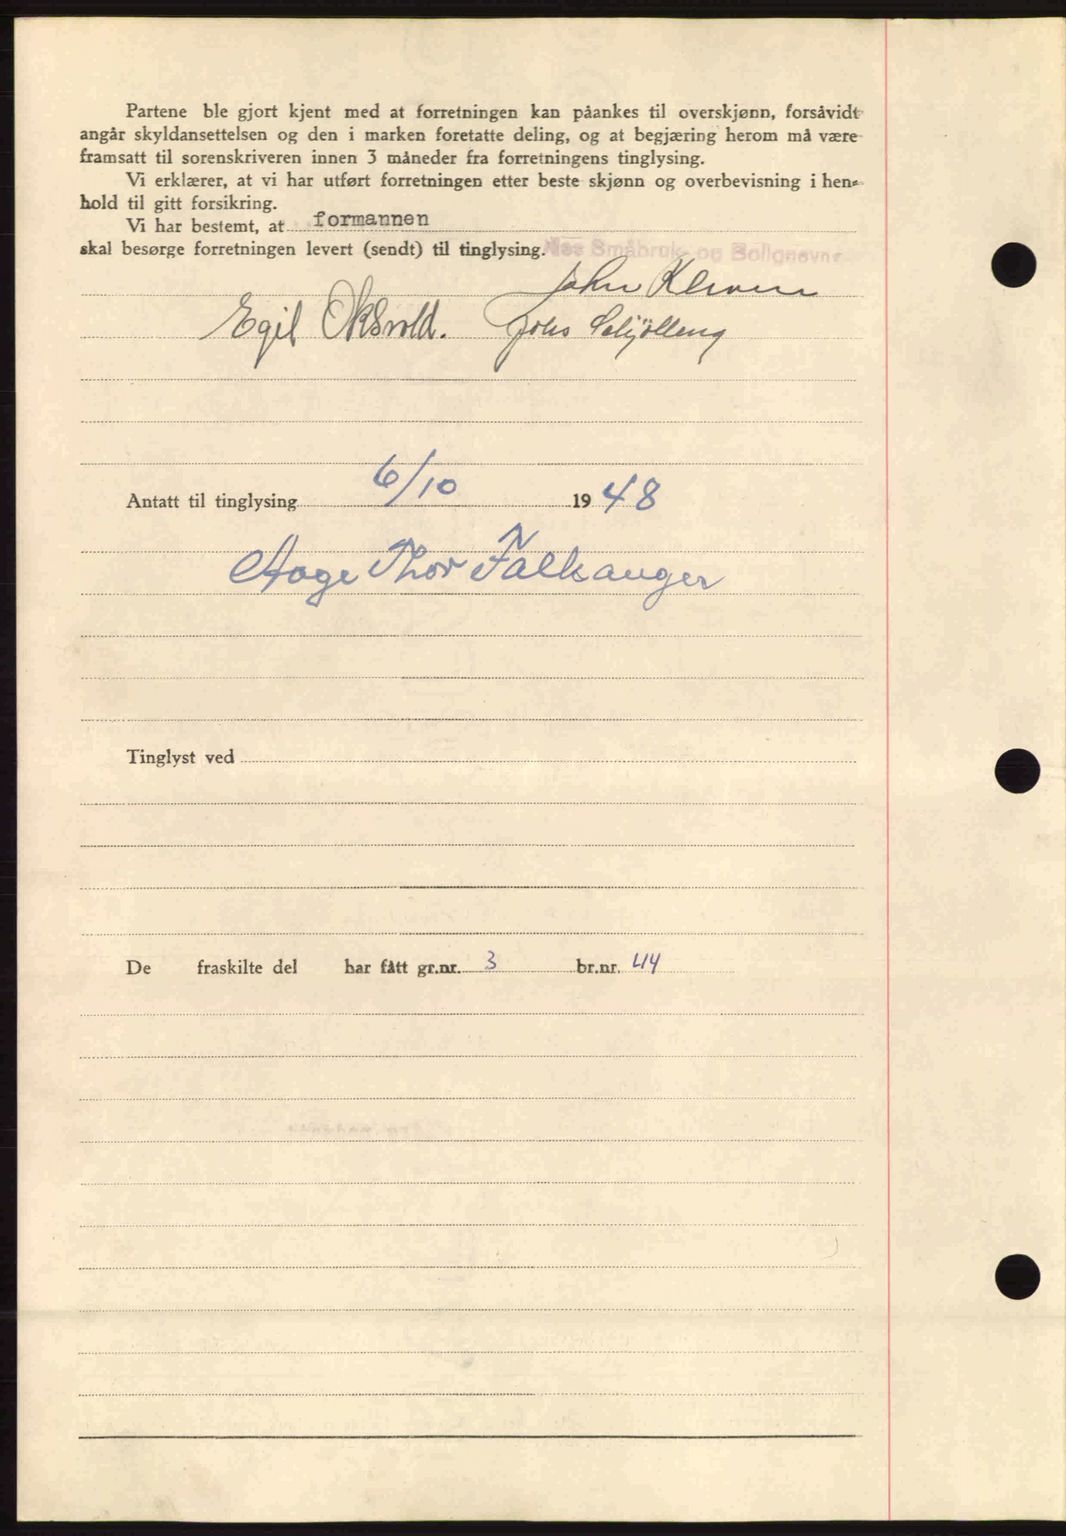 Partene ble gjort kjent med at forretningen kan påankes til overskjønn, forsåvidt
angår skyldansettelsen og den i marken foretatte deling, og at begjæring herom må være
framsatt til sorenskriveren innen 3 måneder fra forretningens tinglysing.
Vi erklærer, at vi har utført forretningen etter beste skjønn og overbevisning i hen-
hold til gitt forsikring.
Vi har bestemt, at formannen
skal besørge forretningen levert (sendt) til tinglysing. Nes Småbruk- og Bolignevnd
John
Egil Oksvold. Johs
Antatt til tinglysing 6/10 1948
Aage Thor Falkanger
Tinglyst ved
De fraskilte del har fått gr.nr. 3 br.nr. 44